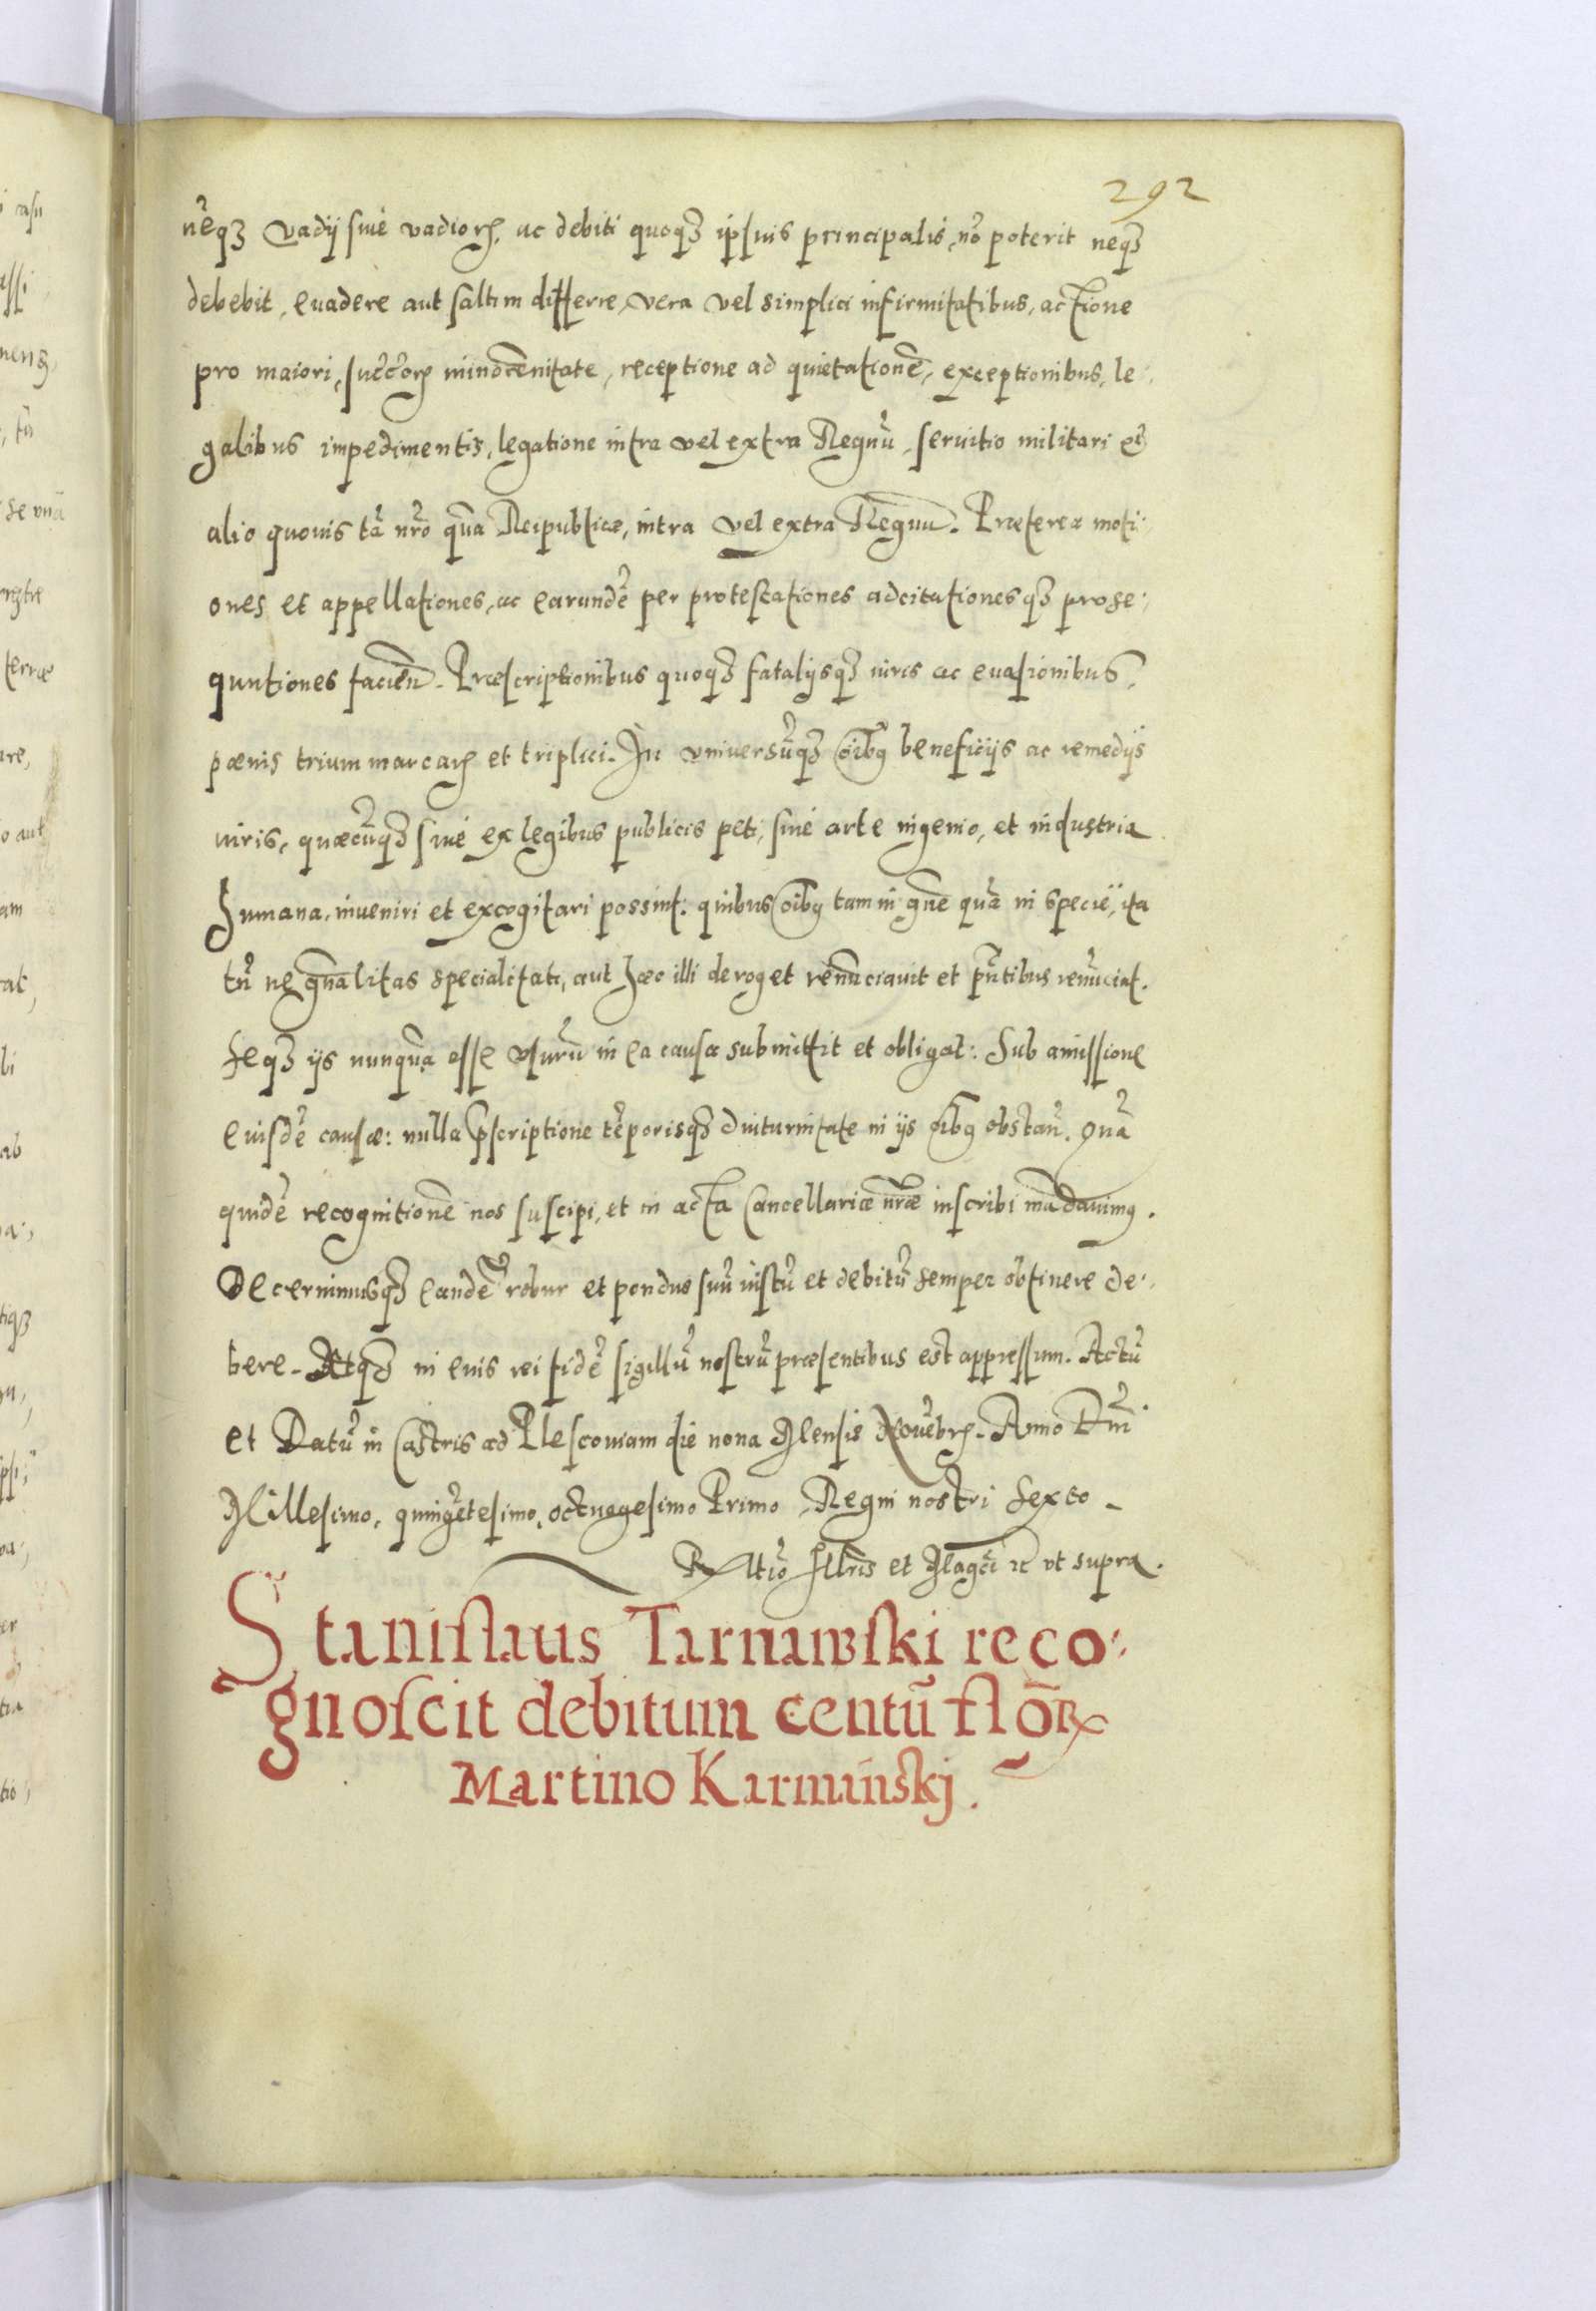 292
neq₃ vadij siue vadioꝝ, ac debiti quoq₃ ipsius principalis, nõ poterit neq₃
debebit, euadere aut saltim differre, vera vel simplici infirmitatibus, actione
pro maiori, succoꝝ minorēnitate, receptione ad quietationē, exceptionibus, le:
galibus impedimentis, legatione intra vel extra Regnũ, seruitio militari et
alio quouis tã nr̃o quã Reipublicæ, intra vel extra Regnũ. Præterea moti:
ones et appellationes, ac earundẽ per protestationes adcitationesq₃ prose:
quutiones faciẽn. Præscriptionibus quoq₃ fatalijsq₃ iuris ac euasionibus,
pænis trium marcaꝝ et triplici. In vniuersũq₃ oĩbꝫ beneficijs ac remedijs
iuris, quæcũq₃ siue ex legibus publicis peti, siue arte ingenio, et industria
humana, inueniri et excogitari possint: quibus oĩbꝫ tam in gñe quã in specie, ita
tñ ne gñalitas specialitati, aut hæc illi deroget renũnciauit et pñtibus renũciat.
seq₃ ijs nunquã esse vsurũ in ea causa submittit et obligat: Sub amissione
euisdẽ causæ: nulla p̃scriptione tẽporisq₃ diuturnitate in ijs oĩbꝫ obstañ. Quã
quidẽ recognitionẽ nos suscipi, et in acta Cancellariæ nr̃æ inscribi mãdauimꝫ.
Decernimusq₃ eandẽ robur et pondus suũ iustũ et debitũ semper obtinere de:
bere. Atq₃ in euis rei fidẽ sigillũ nostrũ præsentibus est appressum. Actũ
et Datũ in Castris ad Plescouiam die nona Mensis Nouẽbꝝ. Anno Dñi
Millesimo, quingẽtesimo, octuagesimo Primo, Regni nostri Sexto.
Rltio Illris et Magci ꝛc vt supra.
Stanislaus Tarnawski reco:
gnoscit debitum centũ flõꝝ
Martino Karmiński.